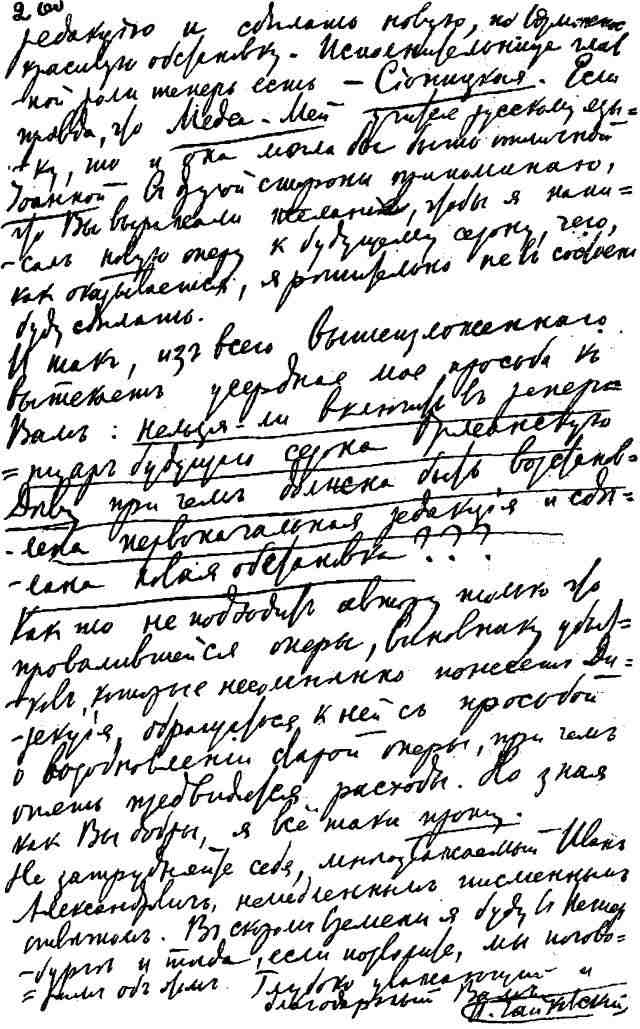 редакцію и сдѣлать новую, но возможно
красивую обстановку. Исполнительница глав
-ной роли теперь есть – Сіоницкая. Если
правда, что Медея-Мей учится русскому язы-
-ку, то и она могла бы быть отличной
Іоанной. Съ другой стороны припоминаю,
что Вы выражали желаніе, чтобы я напи=
-салъ новую оперу къ будущему сезону, чего,
какъ оказывается, я рѣшительно не въ состояніи
буду сдѣлать.
И такъ, изъ всего вышеизложеннаго
вытекаетъ усердная моя просьба къ
Вамъ: нельзя-ли включить въ репер=
=туаръ будущаго сезона Орлеанскую
Дѣву при чемъ должна быть возстанов-
-лена первоначальная редакція и сдѣ-
-лана новая обстановка???
Какъ-то не подходитъ автору только что
провалившейся оперы, виновнику убыт-
-ковъ, которые несомнѣнно понесетъ Ди-
-рекція, обращаться къ ней съ просьбой
о возобновленіи старой оперы, при чемъ
опять предвидятся расходы. Но зная
какъ Вы добры, я всё таки прошу.
Не затрудняйте себя, многоуважаемый Иванъ
Александровичъ, немедленнымъ письменнымъ
отвѣтомъ. Въ скоромъ времени я буду въ Петер
-бургѣ и тогда, если позволите, мы погово-
=римъ объ этомъ. Глубоко уважающій и
благодарный Вамъ
П. Чайковскій